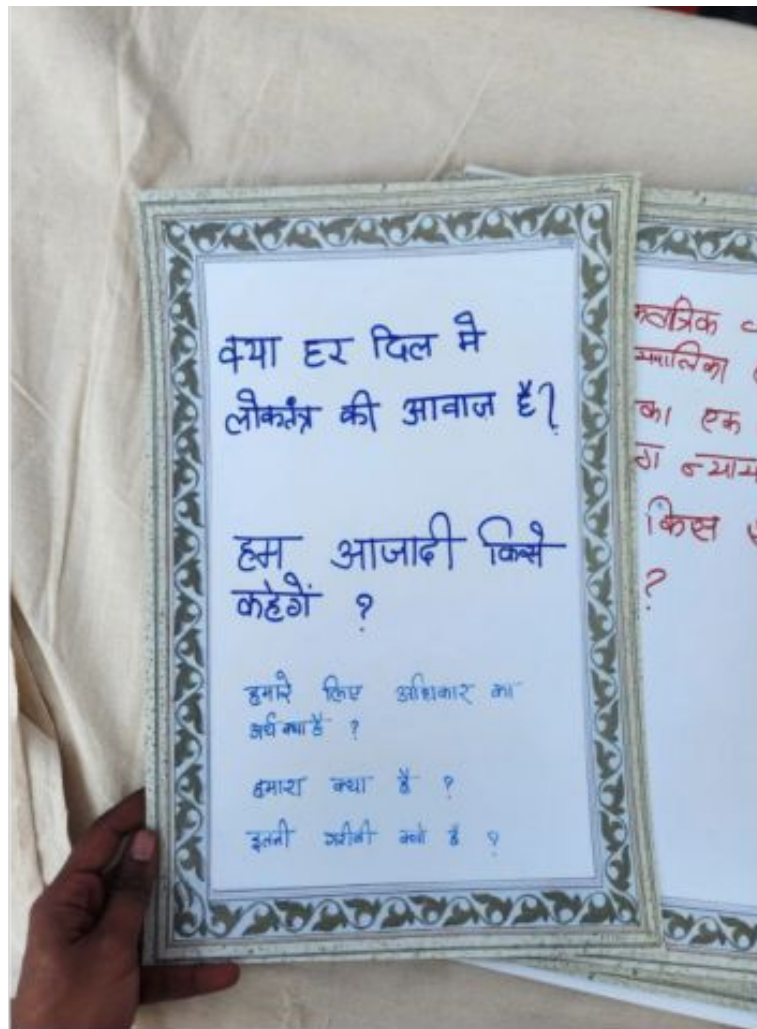 क्या हर दिल मे
लोकतंत्र की आवाज है?
हम आजादी किसे
कहेगें ?
हमारे लिए अधिकार का
अर्थ क्या है ?
हमारा क्या है ?
इतनी गरीबी क्यों है ?
का एक
किस
?